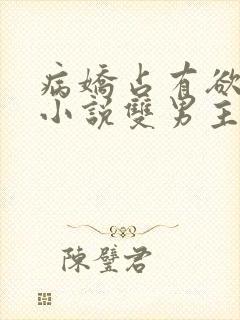 病嬌占有欲
小說雙男主
陳璧君